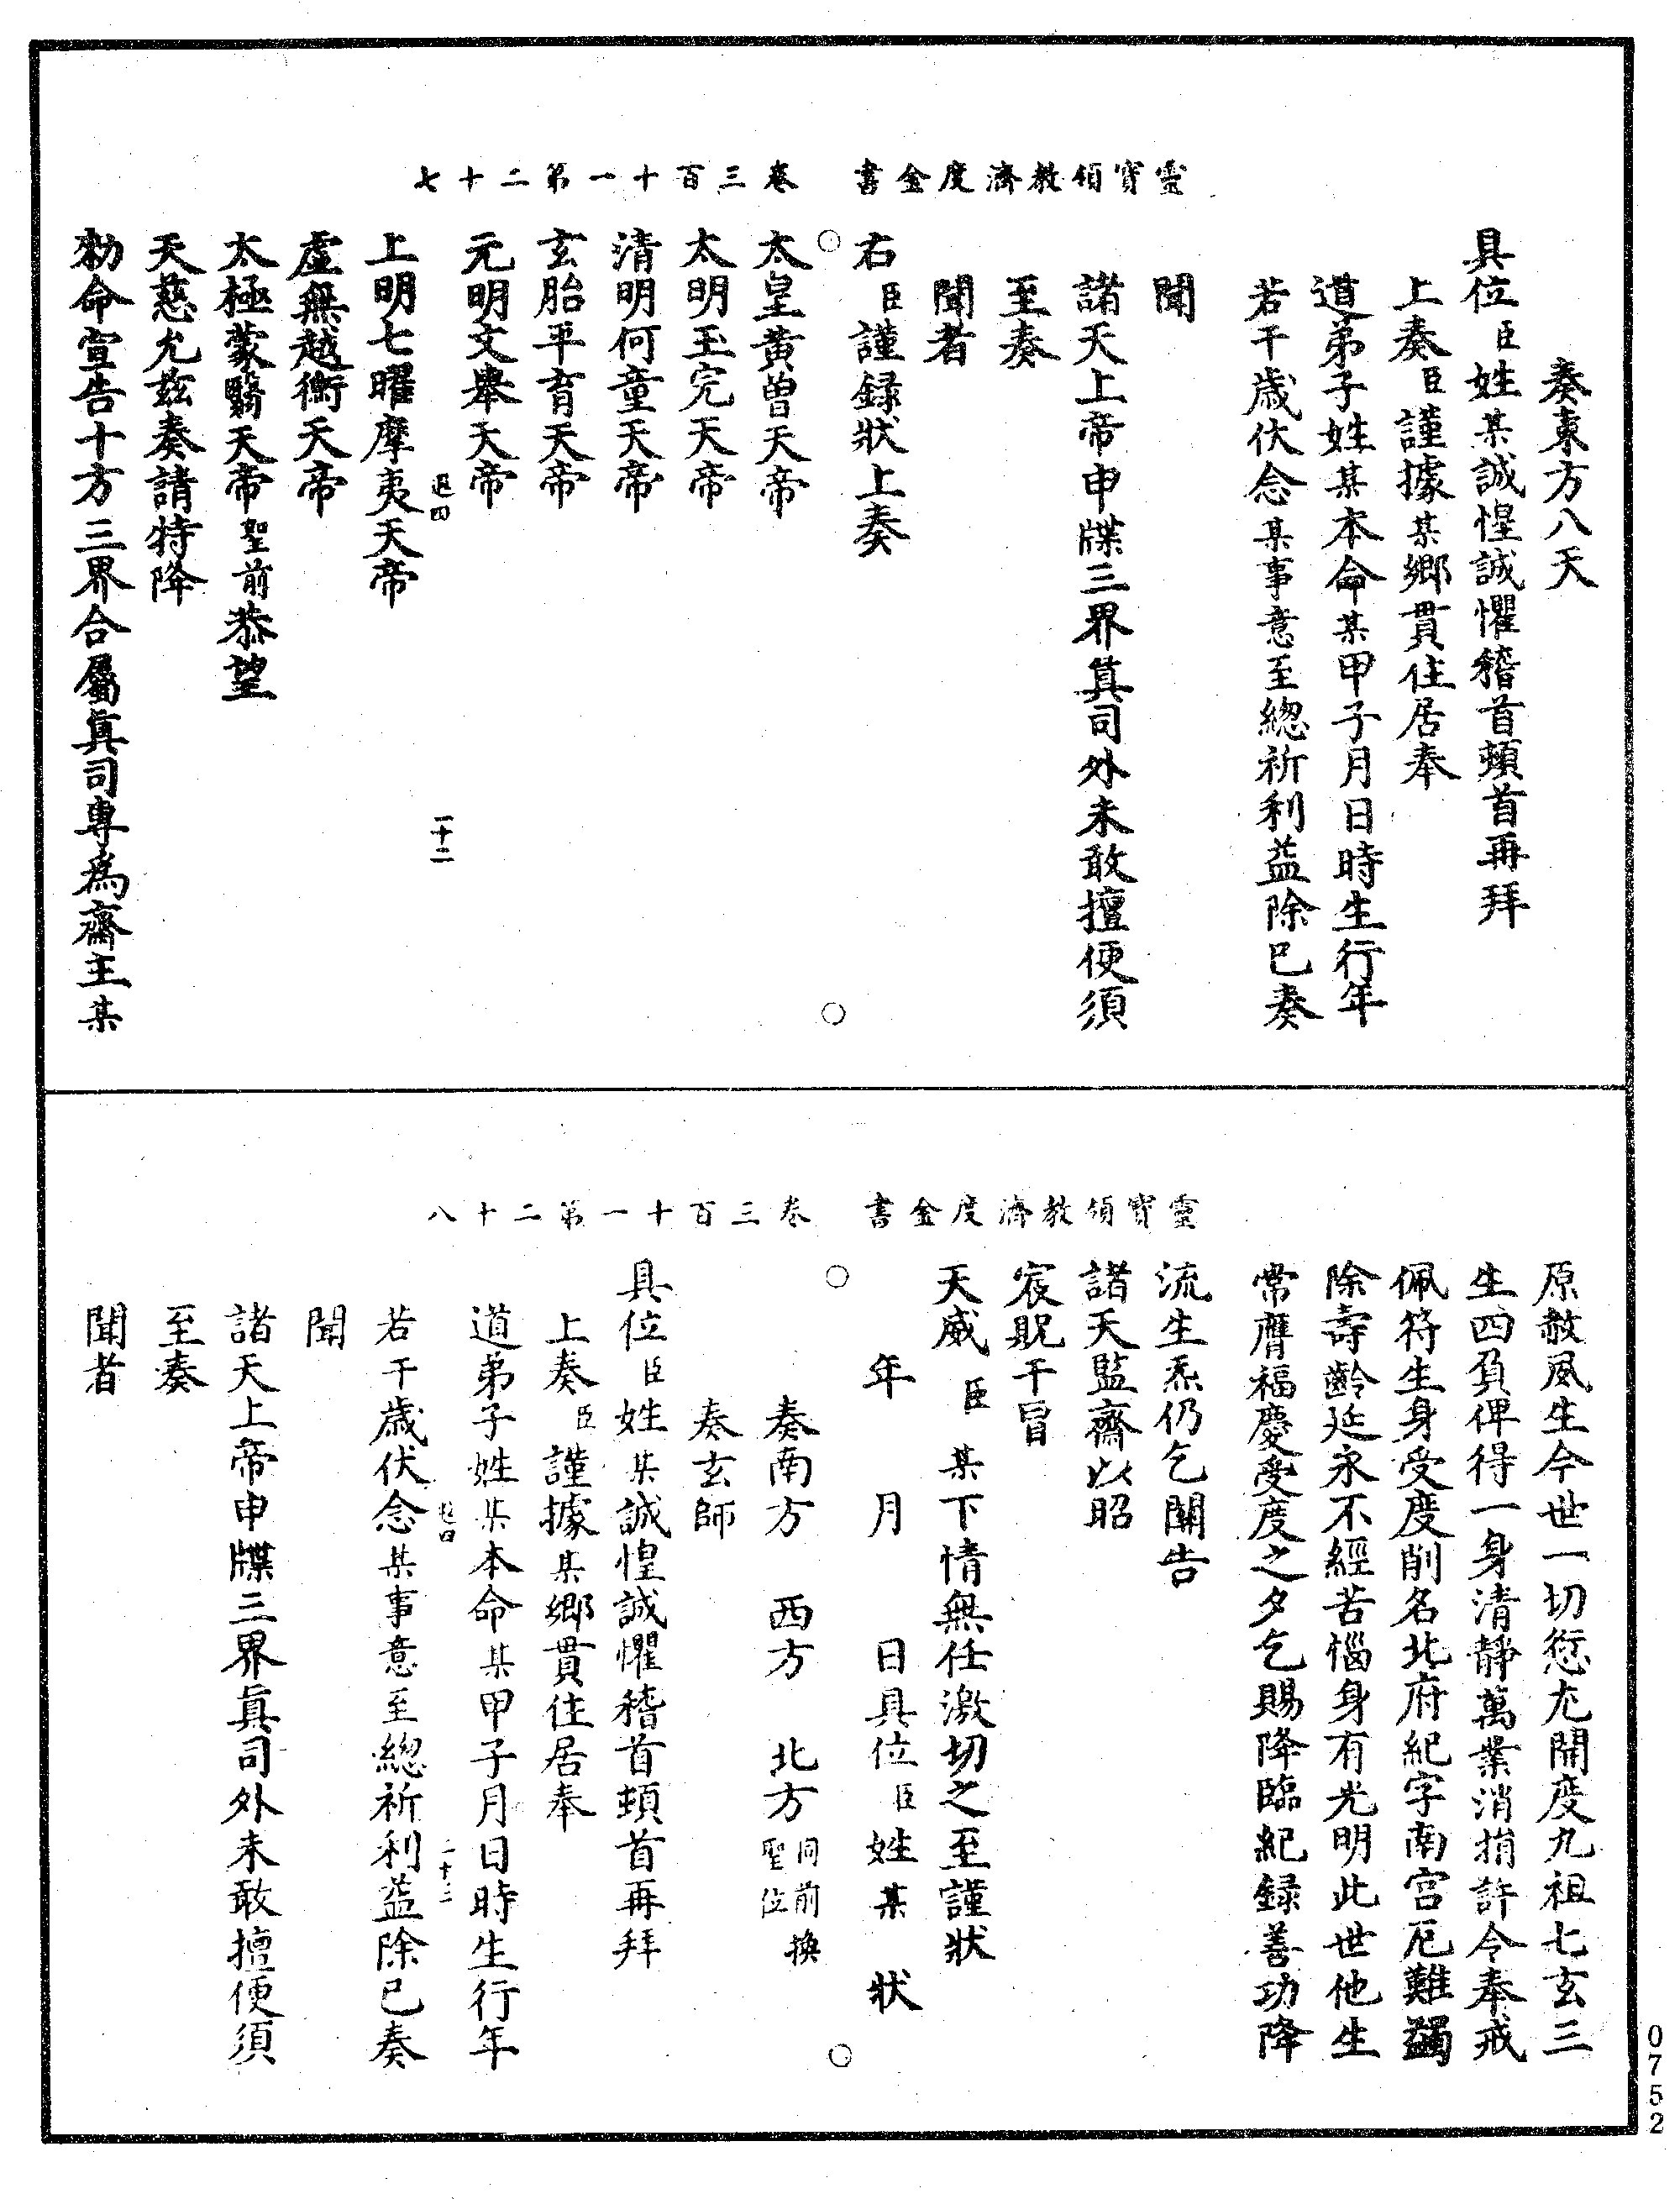 靈寶領教濟度金書　卷三百十一第二十七
奏東方八天
具位臣姓某誠惶誠懼稽首頓首再拜
上奏臣謹據某鄉貫住居奉
道弟子姓某本命某甲子月日時生行年
若干歲伏念某事意至總祈利益除已奏
聞
諸天上帝申牒三界真司外未敢擅便須
至奏
聞者
右臣謹録狀上奏
太皇黃曾天帝
太明玉完天帝
清明何童天帝
玄胎平育天帝
元明文舉天帝
上明七曜摩夷天帝
虛無越衡天帝
太極蒙翳天帝聖前恭望
天慈允玆奏請特降
勑命宣告十方三界合屬真司專為齋主某
靈寶領教濟度金書　卷三百十一第二十八
原赦夙生今世一切愆尤開度九祖七玄三
生四負俾得一身清靜萬業消捐許令奉戒
佩符生身受度削名北府紀字南宫厄難蠲
除壽齡延永不經苦惱身有光明此世他生
常膺福慶受度之夕乞賜降臨紀録善功降
流生炁仍乞關告
諸天監齋以昭
宸貺干冒
天威臣某下情無任激切之至謹狀
年　月　日具位臣姓某　狀
奏南方　西方　北方同前換聖位
奏玄師
具位臣姓某誠惶誠懼稽首頓首再拜
上奏臣謹據某鄉貫住居奉
道弟子姓某本命某甲子月日時生行年
二十二
若干歲伏念某事意至總祈利益除已奏
聞
諸天上帝申牒三界真司外未敢擅便須
至奏
聞者
0752